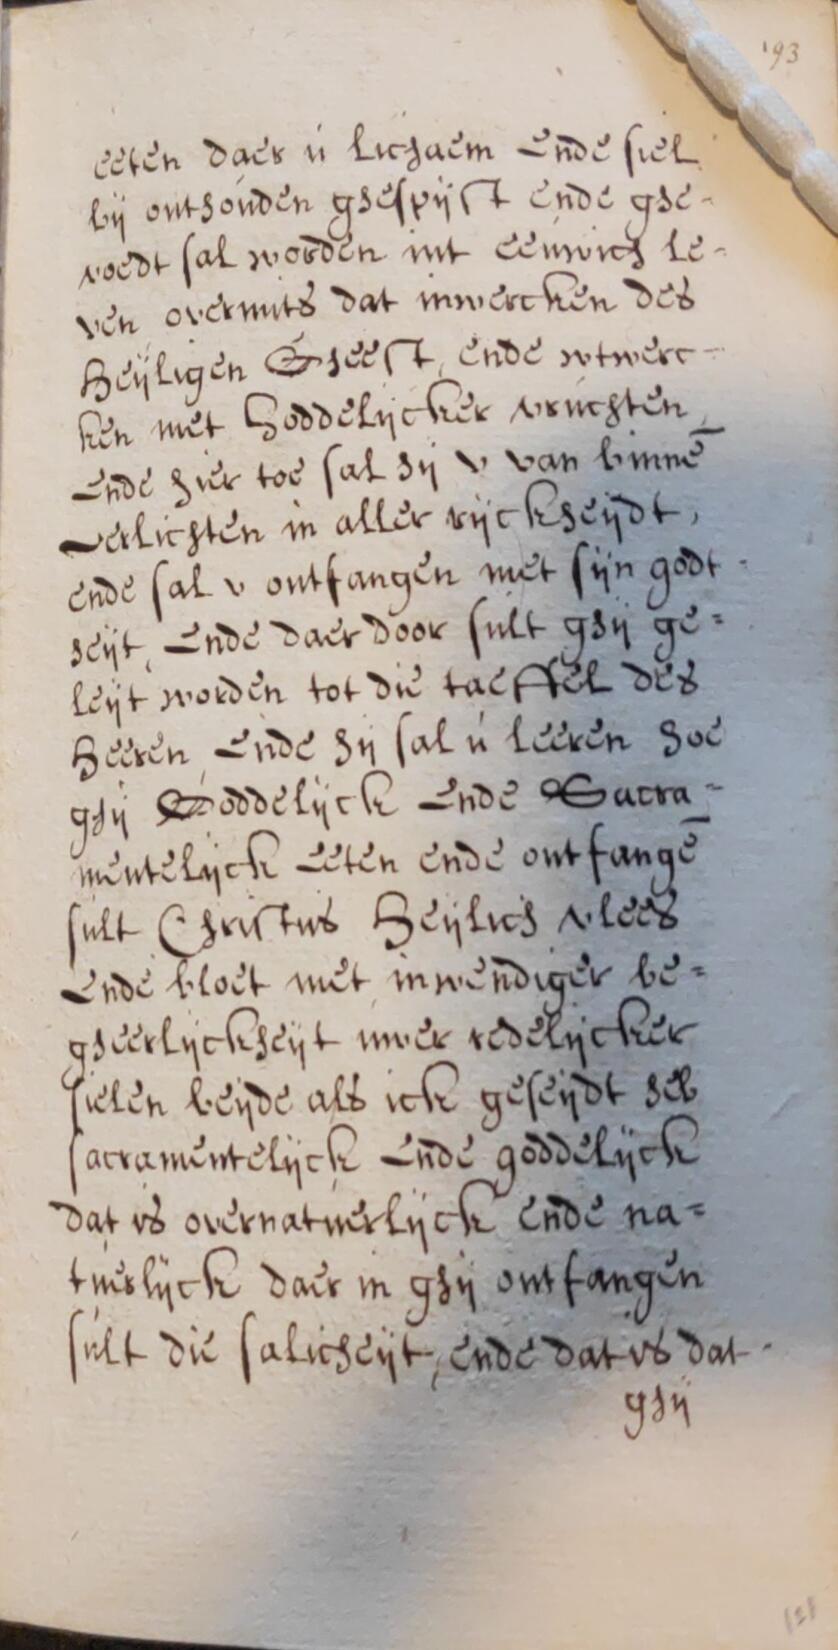 193
eeten daer ú lichaem Ende siel
bij onthoúden ghespijst ende ghe-
voedt sal worden int eeúwich le-
ven overmits dat inwercken des
Heijligen Gheest, ende wtwerc-
ken met Goddelijcker vrúchten,
Ende hier toe sal hij v van binnē
verlichten in aller rijckheijdt,
ende sal v ontfangen met sijn godt-
heijt, Ende daer door súlt ghij ge=
leijt worden tot die taeffel des
Heeren, Ende hij sal ú leeren hoe
ghij Goddelijck Ende Sacra-
mentelijck Eeten ende ontfangē
súlt Christús Heijlich vlees
Ende bloet met inwendiger be=
gheerlijckheijt úwer redelijcker
sielen beijde als ick geseijdt heb
sacramentelijck Ende goddelijck
dat is overnatúerlijck ende na=
túerlijck daer in ghij ontfangen
súlt die salicheijt, ende dat is dat
ghij
121